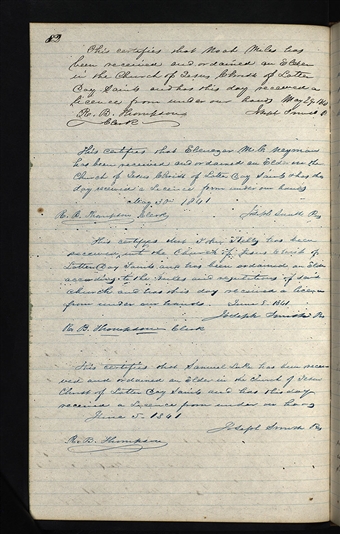 82
This certifies that Noah Miles has
been received and ordained an Elder
in the Church of Jesus Christ of Latter
Day Saints and has this day received a
Licence from under our hands May 29 1841
R. B. Thompson Joseph Smith P
Clerk
This certifies that Ebenezer M. C.
has been received and ordained an Elder in the
Church of Jesus Christ of Latter Day Saints & has this
day received a Licence from under our hands
May 30 1841
R. B. Thompson Clerk Joseph Smith Prs
This certifies that John has been
received into the Church of Jesus Christ of
Latter Day Saints and has been ordained an Elder
according to the rules and regulations of said
church and has this day received a licence
from under our hands. June 5. 1841
Joseph Smith Prs
R. B. Thompson Clerk
This certifies that Samuel Lake has been recei-
ved and ordained an Elder in the Church of Jesus
Christ of Latter Day Saints and has this day
received a Licence from under our hands
June 5. 1841
Joseph Smith Prs
R. B. Thompson